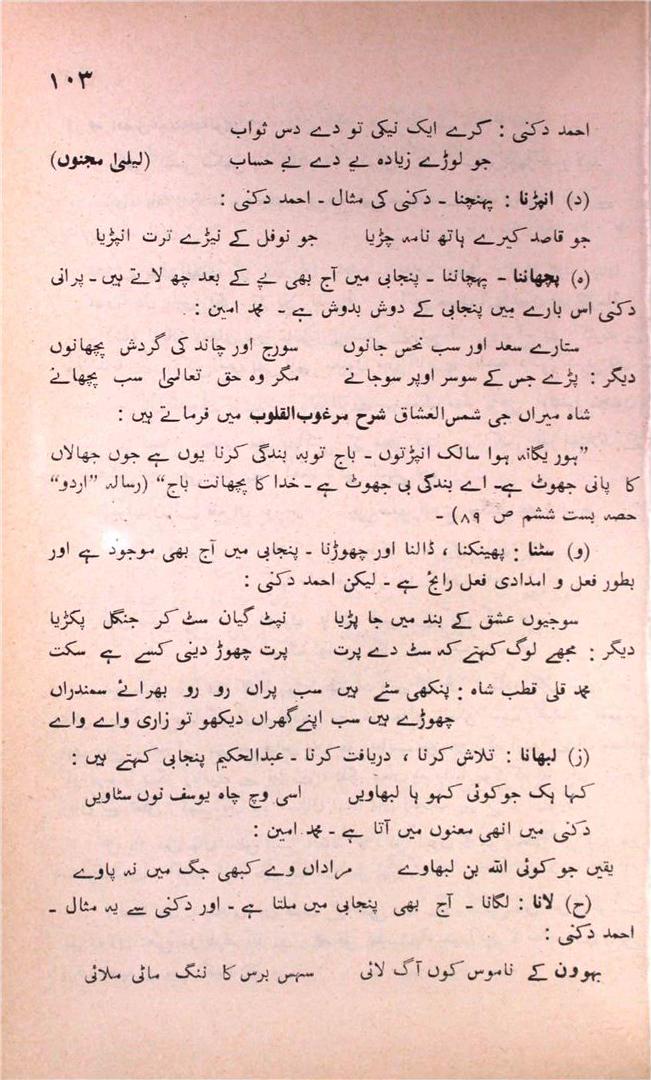 ۱۰۳
احمد دکنی : کرے ایک نیکی تو دے دس ثواب
جو لوڑے زیادہ بے دے بے حساب (لیلیٰ مجنوں)
(د) انپڑنا : پہنچنا ۔ دکنی کی مثال ۔ احمد دکنی :
جو قاصد کیرے ہاتھ نامہ چڑیا جو نوفل کے نیڑے ترت انپڑیا
(ہ) پچھاننا ۔ پہچاننا ۔ پنجابی میں آج بھی پے کے بعد چھ لاتے ہیں ۔ پرانی
دکنی اس بارے میں پنجابی کے دوش بدوش ہے ۔ محمد امین :
ستارے سعد اور سب نحس جانوں سورج اور چاند کی گردش پچھانوں
دیگر : پڑے جس کے سوسر اوپر سوجانے مگر وہ حق تعالیٰ سب پچھانے
شاہ میراں جی شمس العشاق شرح مرغوب القلوب میں فرماتے ہیں :
”ہور یگانہ ہوا سالک انپڑتوں ۔ باج توبہ بندگی کرنا یوں ہے جوں جھالاں
کا پانی جھوٹ ہے۔ اے بندگی بی جھوٹ ہے ۔ خدا کا پچھانت باج“ (رسالہ ”اردو“
حصہ بست ششم ص ۸۹) ۔
(و) سٹنا : پھینکنا ، ڈالنا اور چھوڑنا ۔ پنجابی میں آج بھی موجود ہے اور
بطور فعل و امدادی فعل رایج ہے ۔ لیکن احمد دکنی :
سوجیوں عشق کے بند میں جا پڑیا نپٹ گیان سٹ کر جنگل پکڑیا
دیگر : مجھے لوگ کہتے کہ سٹ دے پرت پرت چھوڑ دینی کسے ہے سکت
محمد قلی قطب شاہ : پنکھی سٹے ہیں سب پراں رو رو بھرائے سمندراں
چھوڑے ہیں سب اپنے گھراں دیکھو تو زاری واے واے
(ز) لبھانا : تلاش کرنا ، دریافت کرنا ۔ عبدالحکیم پنجابی کہتے ہیں :
کہا ہک جوکوئی کہو ہا لبھاویں اسی وچ چاہ یوسف نوں سٹاویں
دکنی میں انھی معنوں میں آتا ہے ۔ محمد امین :
یقیں جو کوئی اللہ بن لبھاوے مراداں وے کبھی جگ میں نہ پاوے
(ح) لانا : لگانا ۔ آج بھی پنجابی میں ملتا ہے ۔ اور دکنی سے یہ مثال ۔
احمد دکنی :
بہوون کے ناموس کوں آگ لائی سہس برس کا ننگ ماٹی ملائی